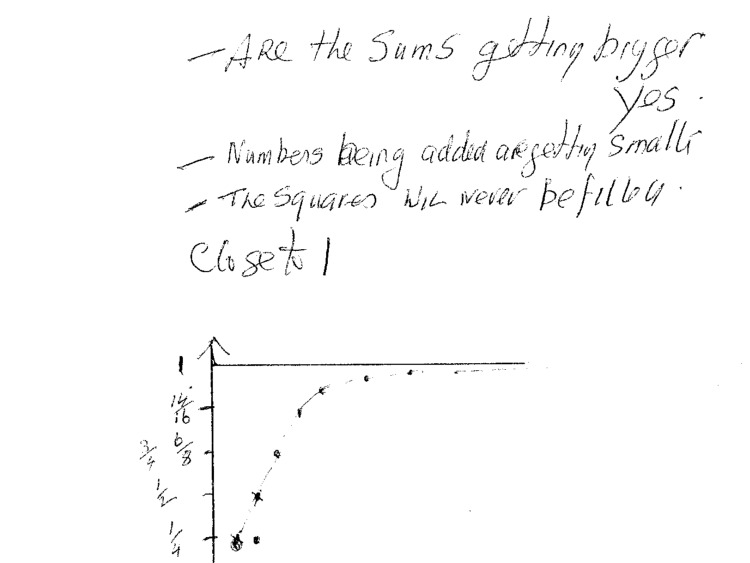 — Are the Sums getting bigger
yes.
— Numbers being added are getting small
— The Squares Will never be filled.
Close to 1
1
14/16
3/4 6/8
1/2
1/4